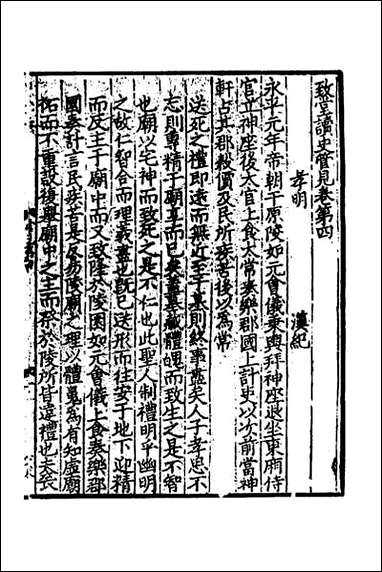 致堂讀史管見卷第四
孝明 漢紀
永平元年帝朝于原陵如元會儀乘輿拜神座退坐東廂侍
官立神座後太官上食太常奏樂郡國上計吏以次前當神
軒占其郡穀價及民所疾苦後以為常
送死之禮即遠而無近至于墓則終事盡矣人子孝思不
志則專精于廟享而已矣蓋墓藏體魄而致生之是不智
也廟以宅神而致死之是不仁也此聖人制禮明乎幽明
之故仁智合而理義盡也既已送形而往安于地下迎精
而反主于廟中而又致隆於陵園如元會儀上食奏樂郡
國奏計言民疾苦是反易陵廟之理以體魄為有知虛廟
祏而不重設復舉廟中之主而祭於陵所皆違禮也夫喪